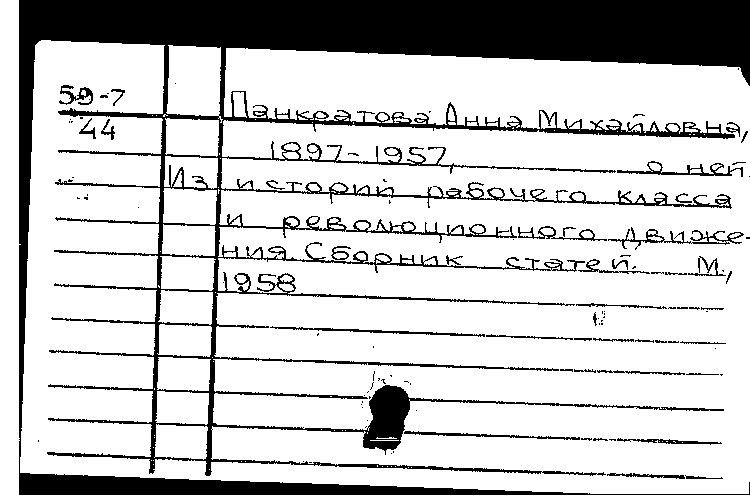 59-7
44
Панкратова Анна Михайловна,
1897-1957, о ней.
Из истории рабочего класса
и революционного движе-
ния. Сборник статей. М.,
1958